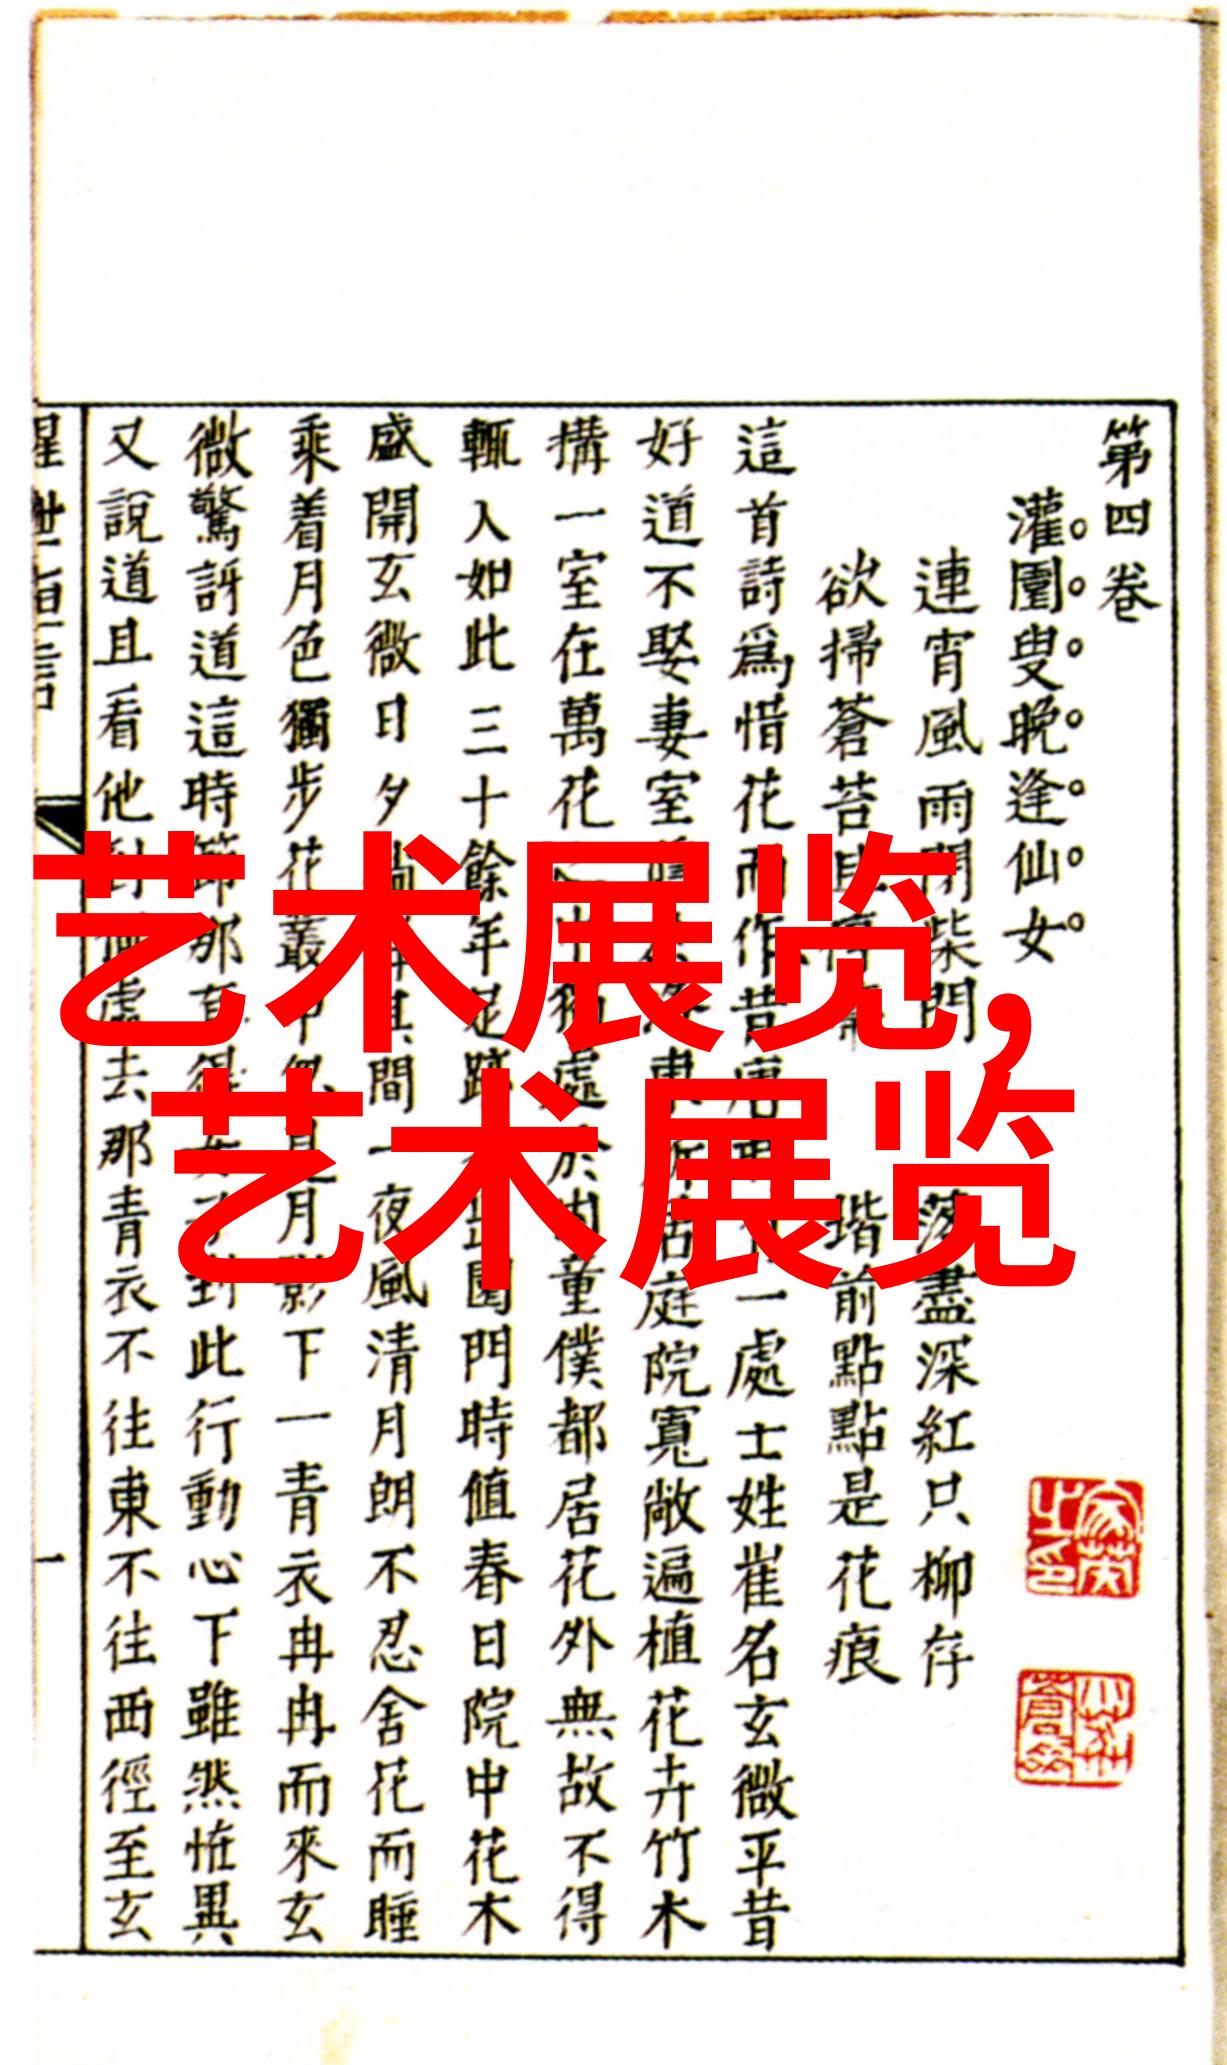 第四卷
灌園叟晚逢仙女
連宵風雨閉柴門 落盡深紅只柳存
欲掃蒼苔且停 階前點點是花痕
這首詩爲惜花而作昔唐一處士姓崔名玄微平昔
好道不娶妻室庭院寬敞遍植花卉竹木
搆一室在萬花處於童僕都居花外無故不得
輒入如此三十餘年足跡園門時值春日院中花木
盛開玄微日夕其間一夜風清月朗不忍舍花而睡
乘着月色獨步花叢中月影下一青衣冉冉而來玄
微驚訝道這時節那得此行動心下雖然怪異
又說道且看他到處去那青衣不往東不往西徑至玄
醒世恒言
一
艺术展览，
艺术展览